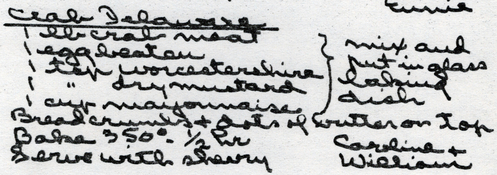 Eunie
Crab Delaware
1 lb crab meat
1 egg beaten
1 tsp worcestershire
1 " dry mustard
1 cup mayonnaise
} mix and
put in glass
baking
dish
Bread crumbs + dots of butter on top
Bake 350° - 1/2 hr
Serve with sherry
Caroline +
William